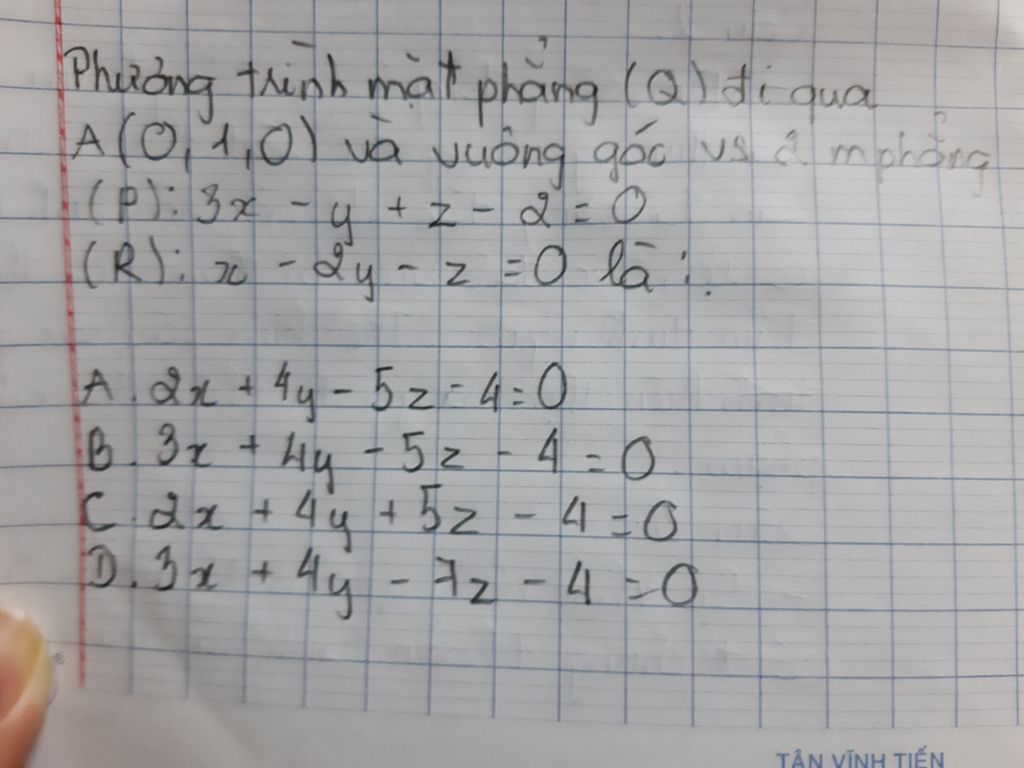 Phương trình mặt phẳng (Q) đi qua
A(0,1,0) và vuông góc vs 2 m phẳng
(P): 3x - y + z - 2 = 0
(R): x - 2y - z = 0 là :.
A. 2x + 4y - 5z - 4 = 0
B. 3x + 4y - 5z - 4 = 0
C. 2x + 4y + 5z - 4 = 0
D. 3x + 4y - 7z - 4 = 0
TÂN VĨNH TIẾN